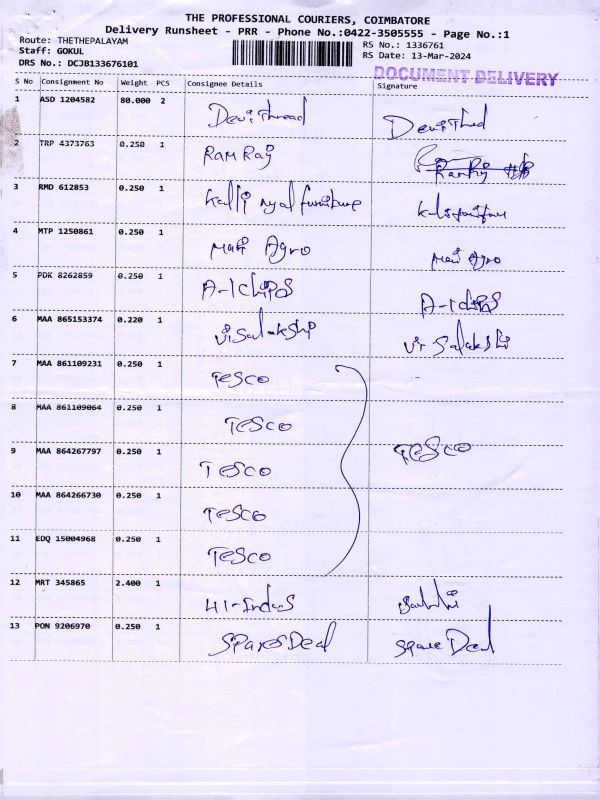 THE PROFESSIONAL COURIERS, COIMBATORE
Delivery Runsheet - PRR - Phone No.:0422-3505555 - Page No.:1
Route: THETHEPALAYAM
Staff: GOKUL
DRS No.: DCJB133676101
RS No.: 1336761
RS Date: 13-Mar-2024
DOCUMENT DELIVERY
S No Consignment No Weight PCS Consignee Details Signature
1 ASD 1204582 80.000 2 Devi Thread Devi Thed
2 TRP 4373763 0.250 1 RAM RAJ
3 RMD 612853 0.250 1 Kalli nyal furniture
4 MTP 1250861 0.250 1 Mari Agro Mari Agro
5 PDK 8262859 0.250 1 A-1 chips A-1 chips
6 MAA 865153374 0.220 1 Visalakshi Vi Salakshi
7 MAA 861109231 0.250 1 TESCO
8 MAA 861109064 0.250 1 TESCO
9 MAA 864267797 0.250 1 TESCO TESCO
10 MAA 864266730 0.250 1 TESCO
11 EDQ 15004968 0.250 1 TESCO
12 MRT 345865 2.400 1 HI-Indus
13 PON 9206970 0.250 1 Spares Deal Spare Deal